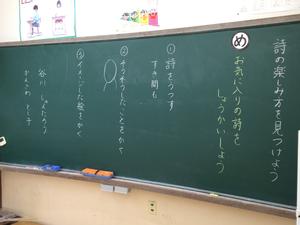 詩の楽しみ方を見つけよう
め
お気に入りの詩を
しょうかいしよう
①詩をうつす
すき間も
②そうぞうしたことをかく
③イメージした絵をかく
谷川 しゅんたろう
かねこ みすず